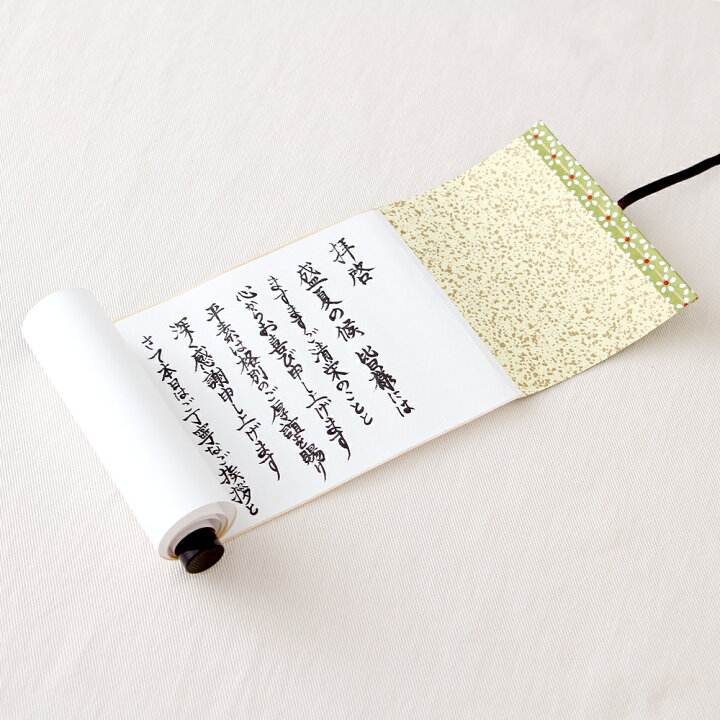 拝啓
盛夏の候 皆様には
ますますご清栄のことと
心からお喜び申し上げます
平素は格別のご厚誼を賜り
深く感謝申し上げます
さて本日はご丁寧なご挨拶と